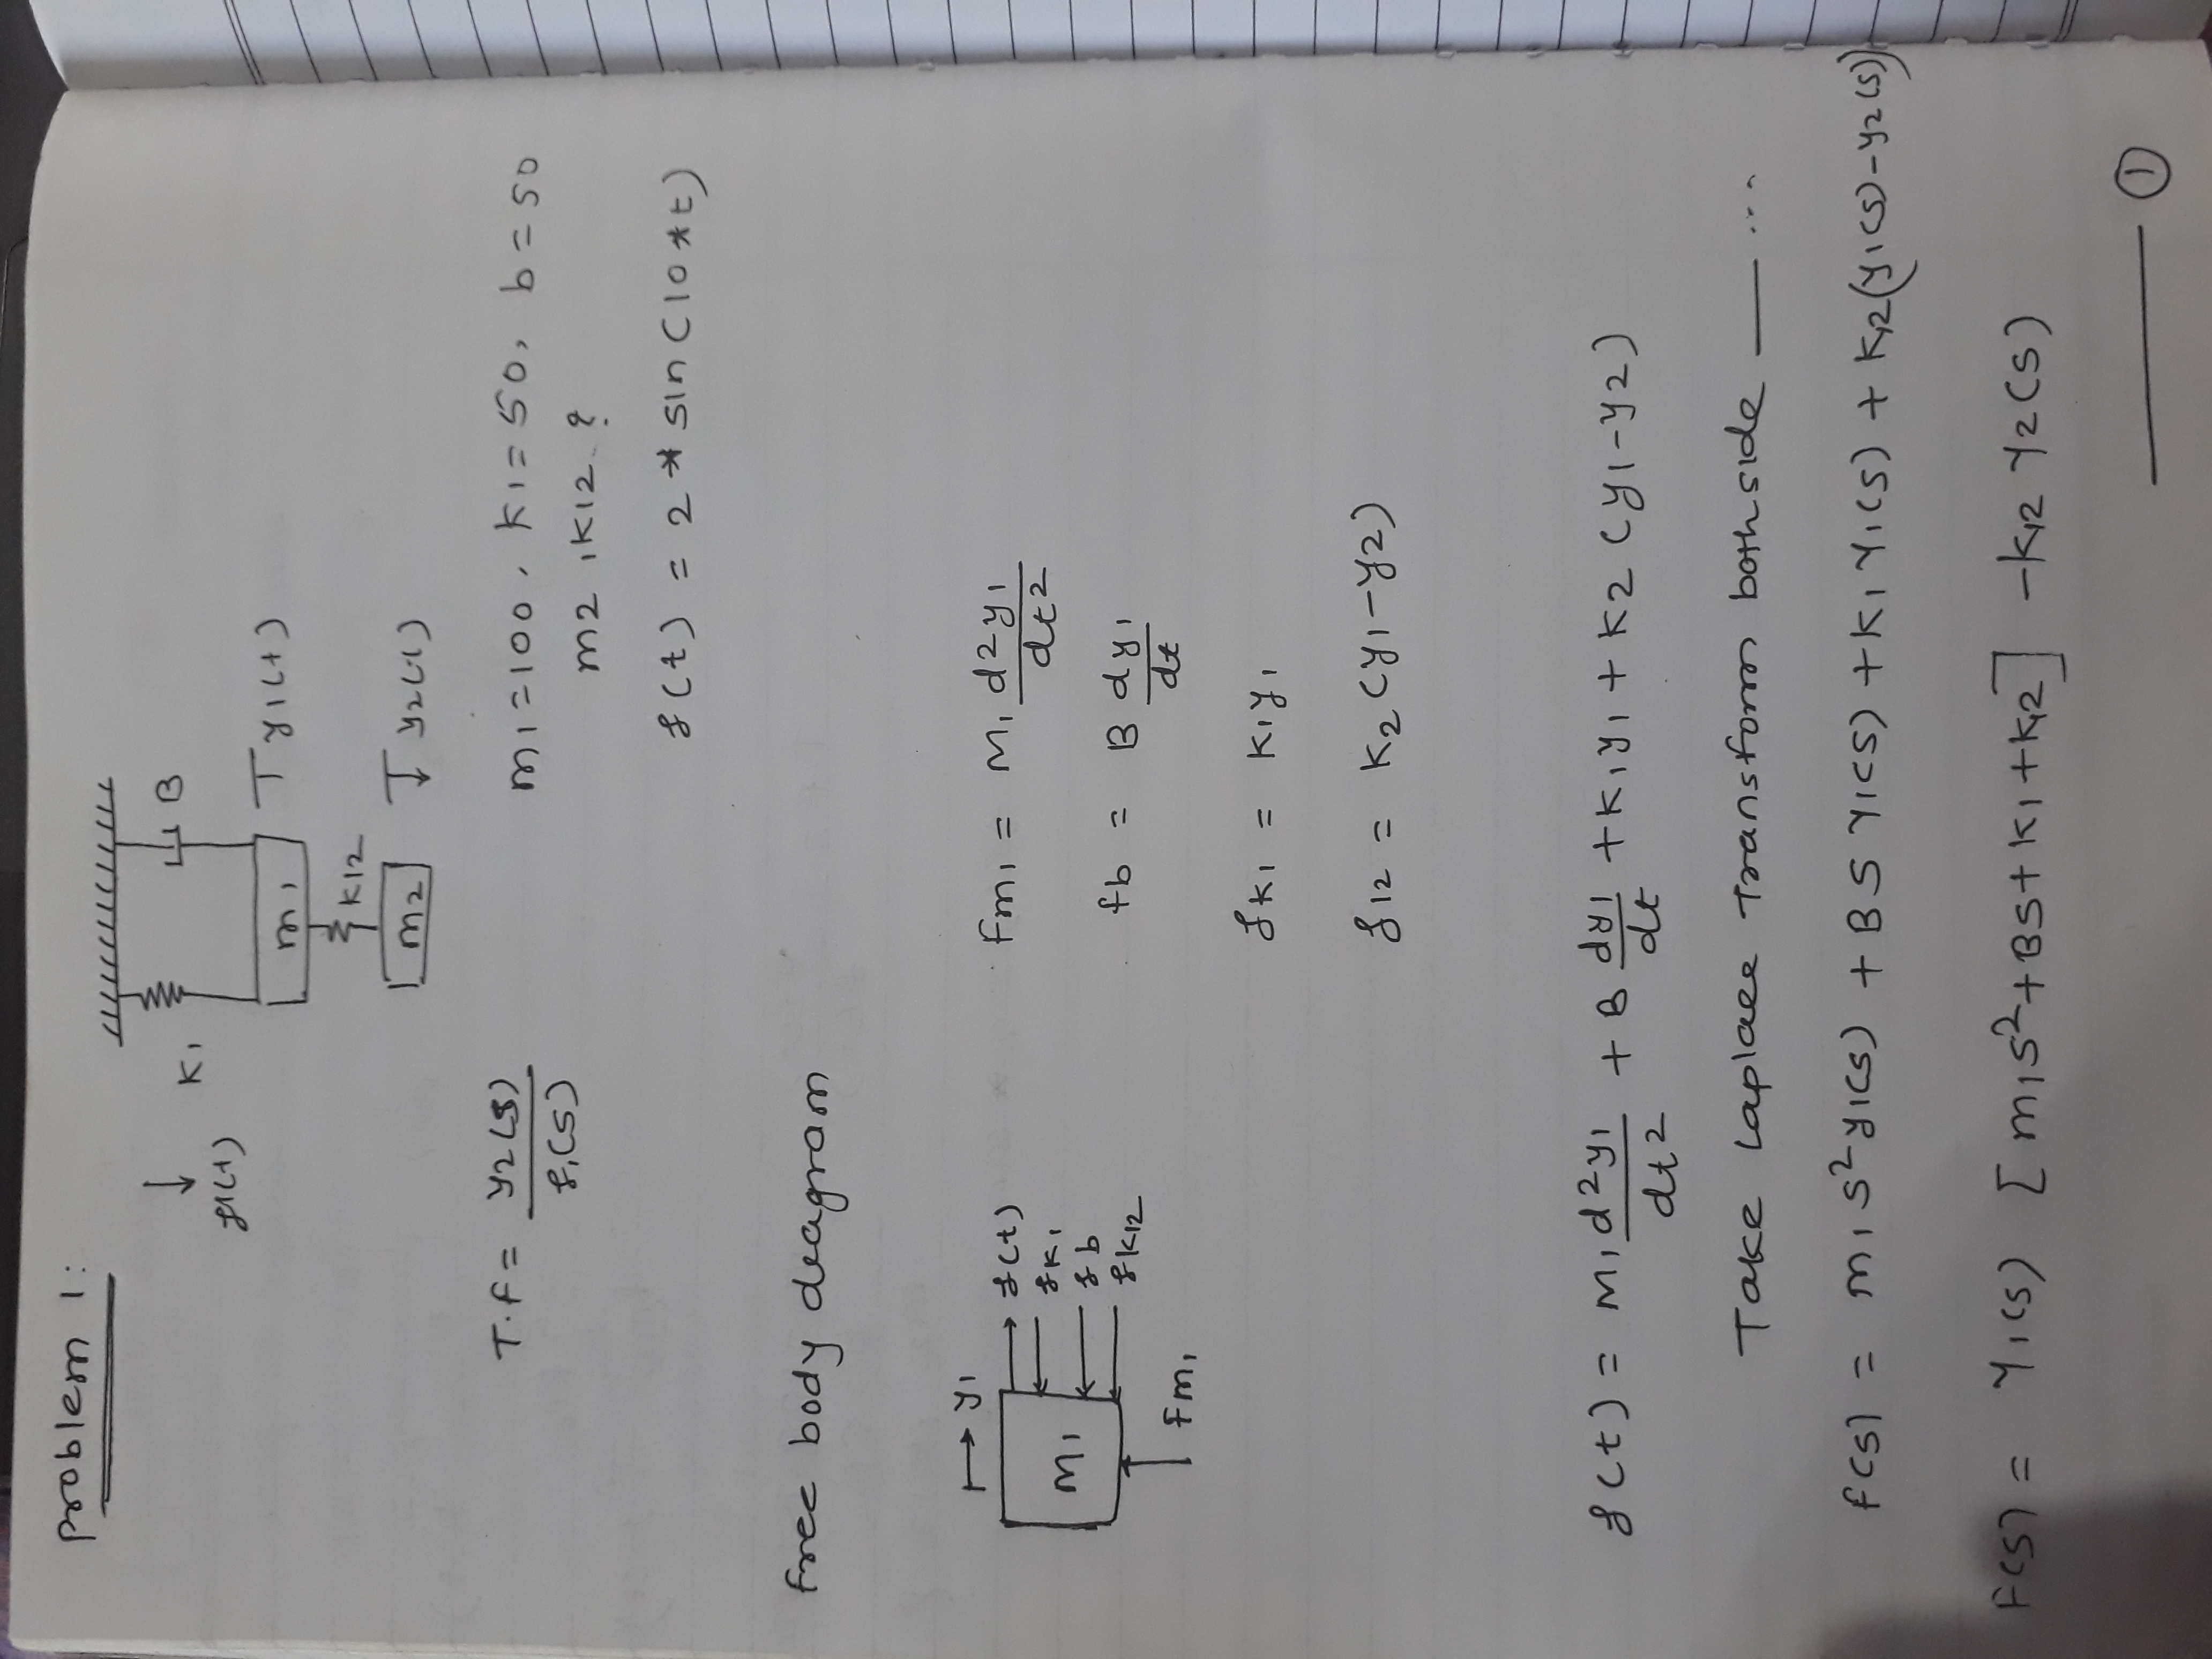 problem 1:
f1(t)
K1
B
m1
y1(t)
K12
m2
y2(t)
T.f = y2(s) / f1(s)
m1=100, K1=50, b=50
m2, K12 ?
f(t) = 2 * sin(10*t)
free body deagram
y1
f(t)
fK1
m1
fb
fK12
Fm1
Fm1 = M1 d2y1/dt2
fb = B dy1/dt
fK1 = K1y1
f12 = K2 (y1-y2)
f(t) = M1 d2y1/dt2 + B dy1/dt + K1y1 + K2 (y1-y2)
Take Laplace Transform both side — ...
F(s) = m1s²y1(s) + BS Y1(s) + K1 Y1(s) + K12(y1(s)-y2(s))
F(s) = Y1(s) [m1s²+BS+K1+K12] -K12 Y2(s)
— 1